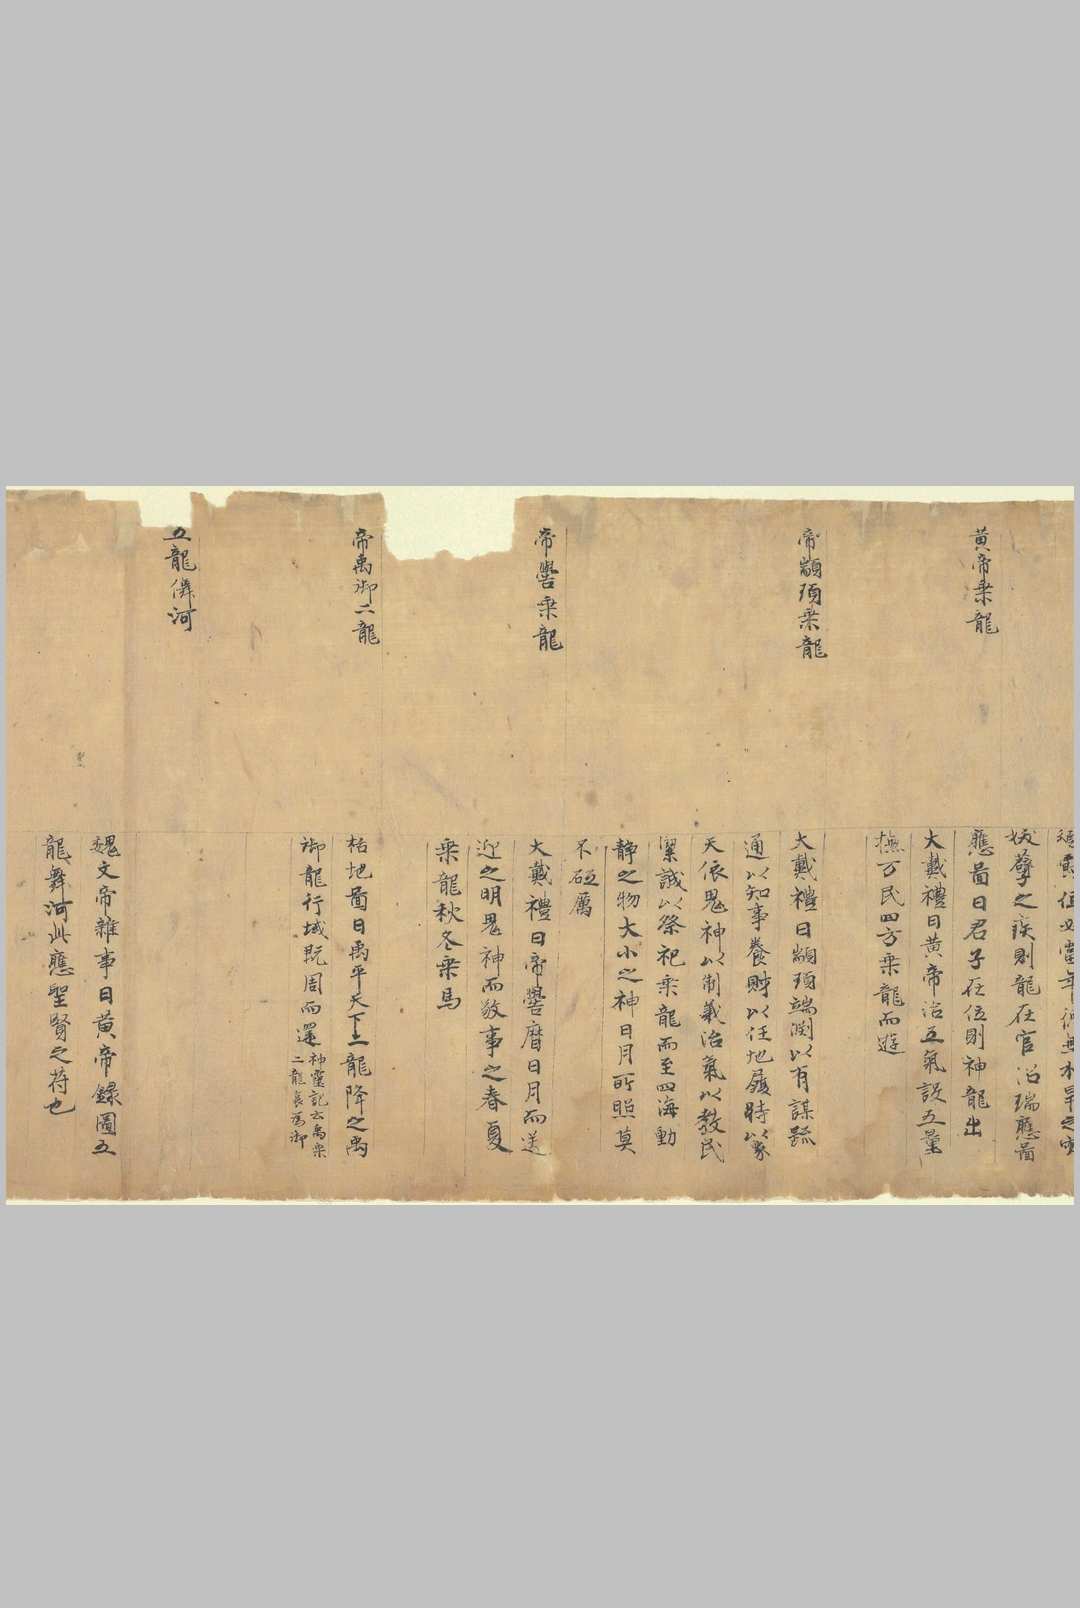 妖孽之疾則龍在官沼瑞應啚
應啚曰君子在位則神龍出
黄帝乗龍
大戴禮曰黄帝治五氣設五量
撫万民四方乗龍而遊
帝顓頊乗龍
大戴禮曰顓頊端渕以有謀踈
通以知事養財以任地履時以象
天依鬼神以制義治氣以教民
潔誠以祭祀乗龍而至四海動
静之物大小之神日月所照莫
不砥厲
帝嚳乗龍
大戴禮曰帝嚳暦日月而送
迎之明鬼神而敬事之春夏
乗龍秋冬乗馬
帝禹御二龍
括地啚曰禹平天下二龍降之禹
御龍行域既周而還
神靈記云禹乗
二龍 為御
五龍儛河
魏文帝雜事曰黄帝録圖五
龍舞河此應聖賢之苻也
聖